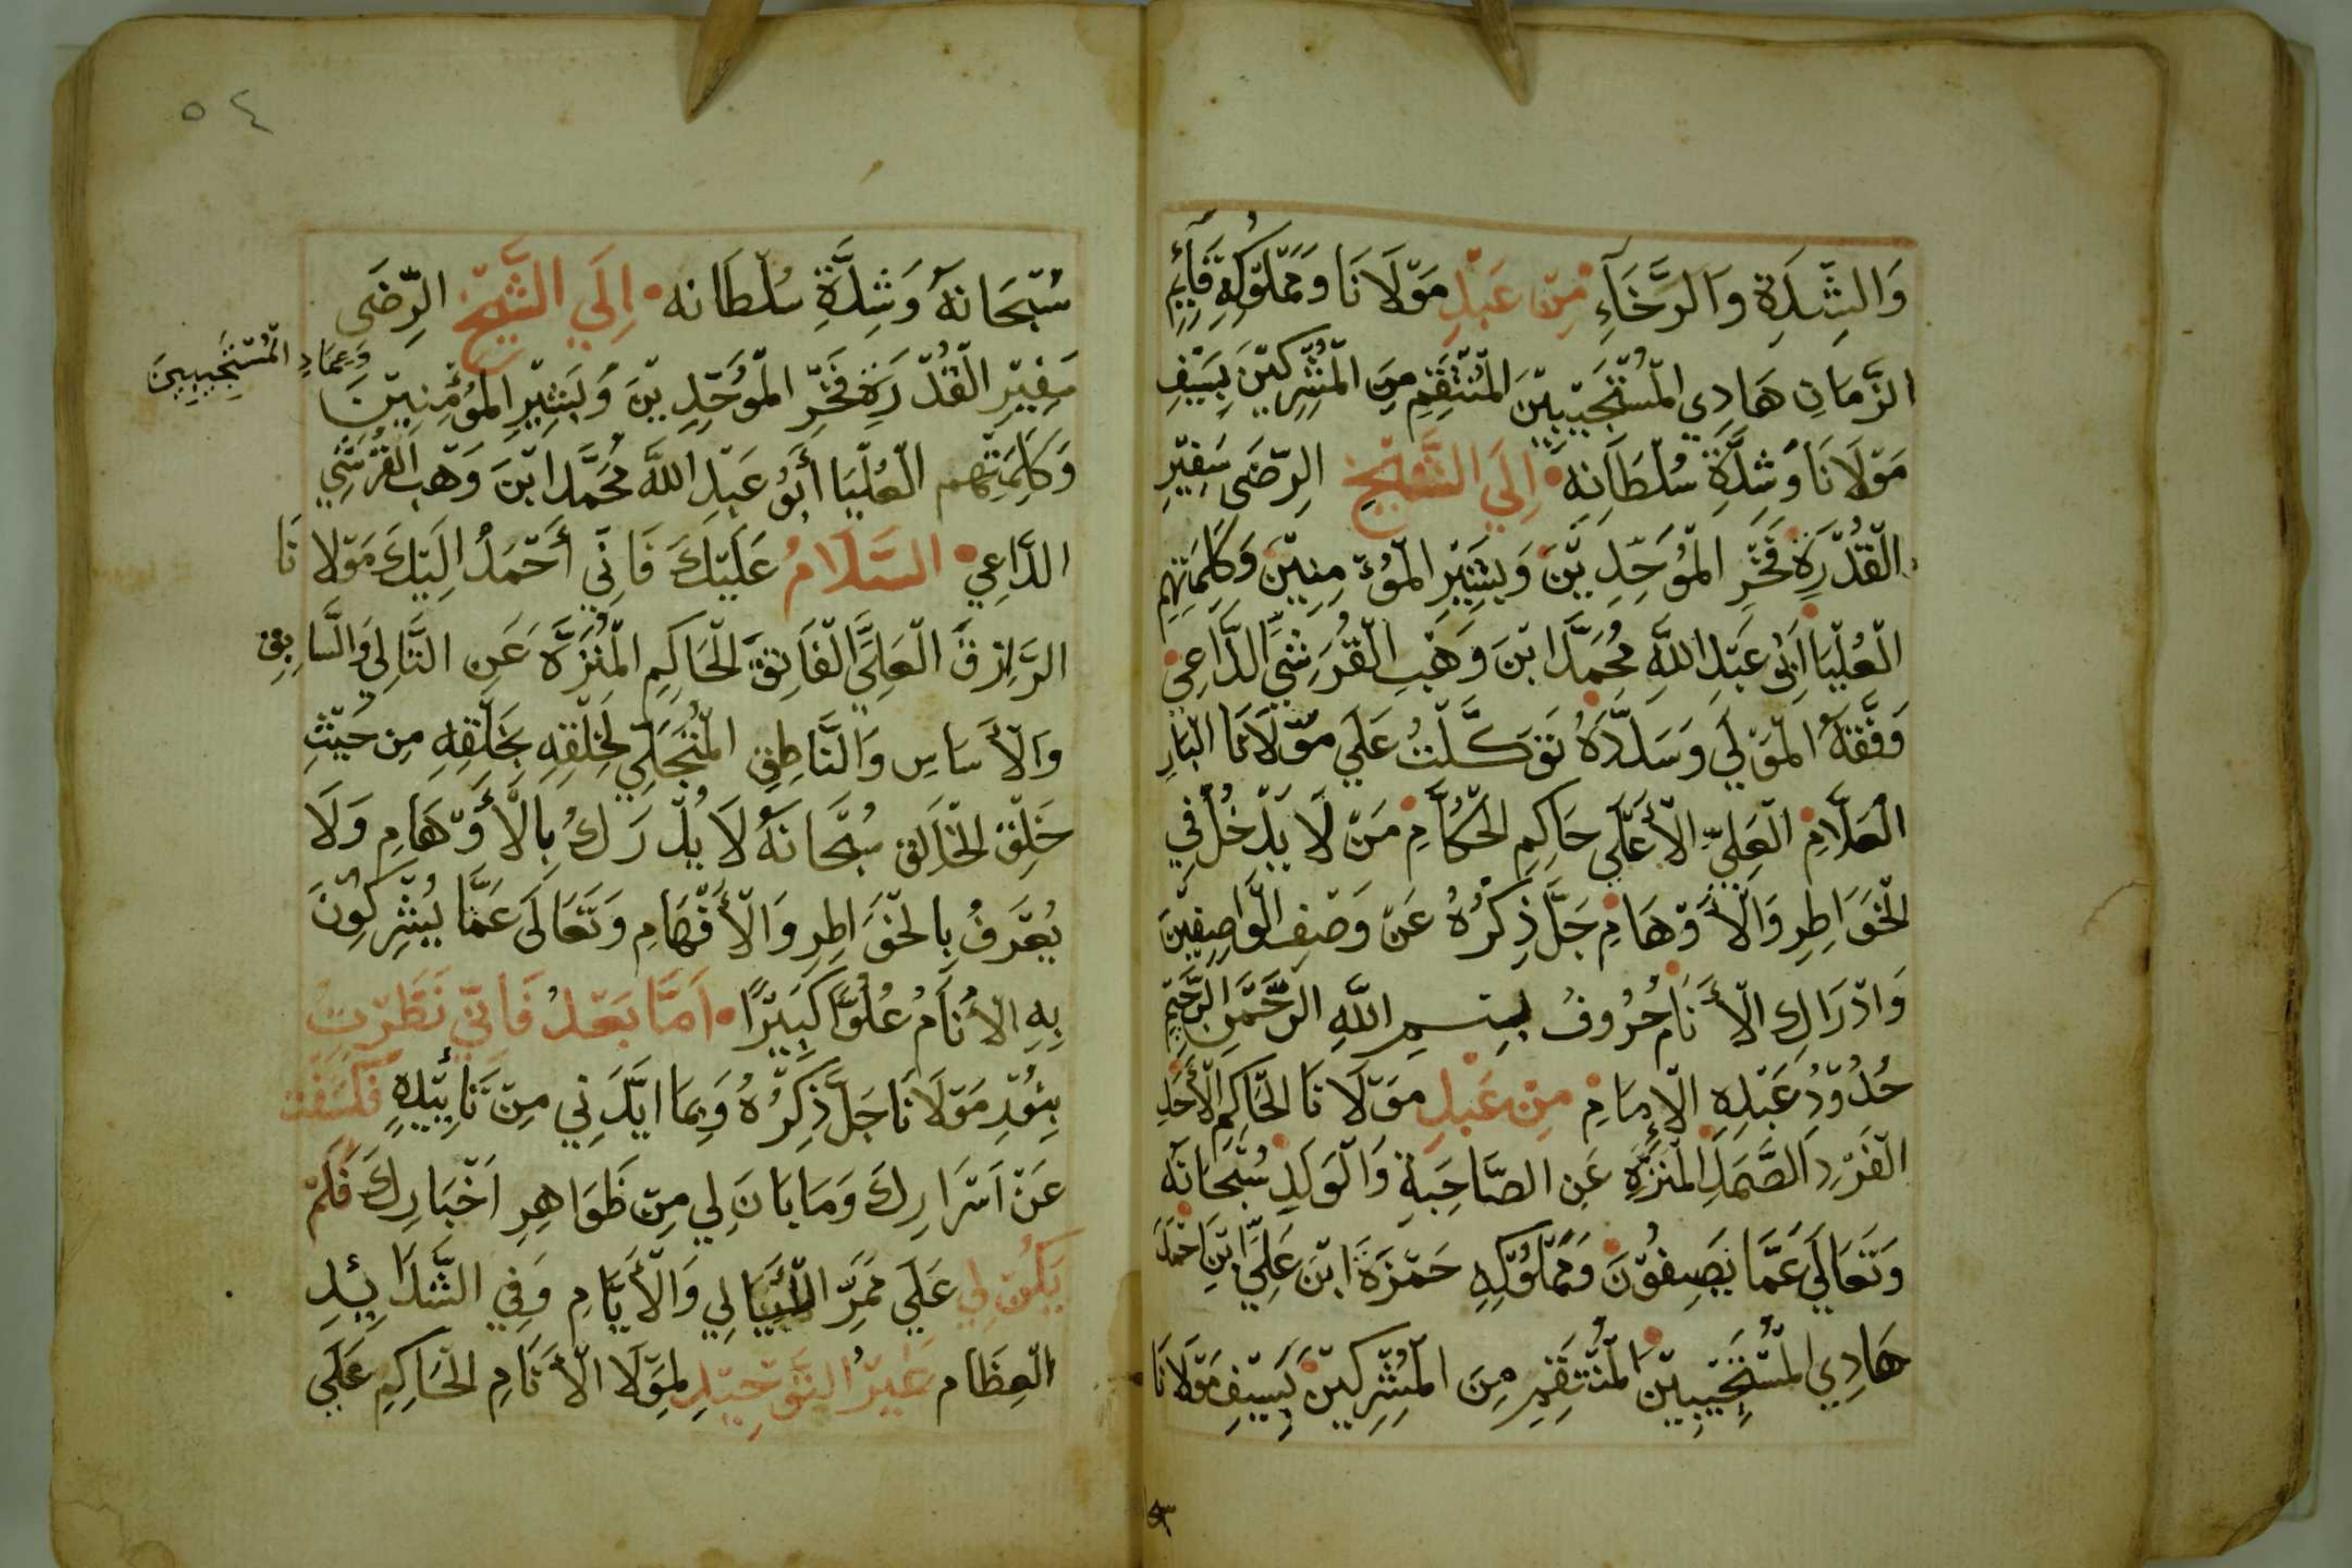 وَالشِّدَةِ وَالرَّخَآءِ مِنْ عَبْدِ مَوْلَانَا وَمَمْلُوْكِهِ قَآئِمِ
الزَّمَانِ هَادِي الْمُسْتَجِيْبِيْنَ الْمُنْتَقِمِ مِنَ الْمُشْرِكِيْنَ بِسَيْفِ
مَوْلَانَا وَشِدَّةِ سُلْطَانِهِ اِلَي الشَّيْخِ الرِّضَى سَفِيْرِ
الْقُدْرَةِ فَخْرِ الْمُوَحِّدِيْنَ وَبَشِيْرِ الْمُؤْمِنِيْنَ وَكَلِمَتِهِمِ
الْعُلْيَا اَبِي عَبْدِ اللَّهِ مُحَمَّدِ ابْنَ وَهْبِ الْقُرَشِيِّ الدَّاعِيْ
وَفَّقَهُ الْمَوْلَي وَسَدَّدَهُ تَوَكَّلْتُ عَلَي مَوْلَانَا الْبَارِ
الْعَلَّامِ الْعَلِيِّ الْأَعْلَي حَاكِمِ الْحُكَّامِ مَنْ لَا يَدْخُلُ فِي
الْخَوَاطِرِ وَالْأَوْهَامِ جَلَّ ذِكْرُهُ عَنْ وَصْفِ الْوَاصِفِيْنَ
وَادْرَاكِ الْأَنَامِ حُرُوفُ بِسْمِ اللَّهِ الرَّحْمَنِ الرَّحِيْمِ
حُدُوْدُ عَبْدِهِ الْإِمَامِ مِنْ عَبْدِ مَوْلَانَا الْحَاكِمِ الْأَحَدِ
الْفَرْدِ الصَّمَدِ الْمُنَزَّهِ عَنِ الصَّاحِبَةِ وَالْوَلَدِ سُبْحَانَهُ
وَتَعَالَي عَمَّا يَصِفُوْنَ وَمَمْلُوْكِهِ حَمْزَةَ ابْنَ عَلِيِّ ابْنِ احْمَدَ
هَادِي الْمُسْتَجِيْبِيْنَ الْمُنْتَقِمِ مِنَ الْمُشْرِكِيْنَ بِسَيْفِ مَوْلَانَا
٥٤
سُبْحَانَهُ وَشِدَّةِ سُلْطَانه اِلَي الشَّيْخِ الرِّضَى
سَفِيْرِ الْقُدْرَةِ فَخْرِ الْمُوَحِّدِيْنَ وَبَشِيْرِ الْمُؤْمِنِيْنَ
وَعِمَادِ الْمُسْتَجِيْبِيْنَ
وَكَلِمَتِهِم الْعُلْيَا أَبُو عَبْدِ اللَّه مُحَمَّدِ ابْنَ وَهْبِ الْقُرَشِيِ
الدَّاعِي السَّلَامُ عَلَيْكَ فَاِنِّي أَحْمَدُ اِلَيْكَ مَوْلَانَا
الرَّازِقَ الْعَلِيَّ الْفَاتِقَ الْحَاكِمِ الْمُنَزَّهَ عَنِ التَّالِي وَالسَّابِقِ
وَالْأَسَاسِ وَالنَّاطِقِ الْمُتَجَلِّي لِخَلْقِهِ بِخَلْقِهِ مِن حَيْثِ
خَلْقِ الْخَالِقِ سُبْحَانَهُ لَا يُدْرَكُ بِالْأَوْهَامِ وَلَا
يُعْرَفُ بِالْخَوَاطِرِ وَالْأَفْهَامِ وَتَعَالَى عَمَّا يُشْرِكُوْنَ
بِهِ الْأَنَامُ عُلُوًّا كَبِيْرًا اَمَّا بَعْدُ فَاِنِّي نَظَرْتُ
بِنُوْرِ مَوْلَانَا جَلَّ ذِكْرُهُ وَبِمَا ايَّدَنِي مِنْ تَأْيِيْدِهِ فَكَشَفْتُ
عَنْ اَسْرَارِكَ وَمَا بَانَ لِي مِنْ ظَوَاهِرِ اَخْبَارِكَ فَلَمْ
يَكُوْن لِي عَلَي مَمَرِّ اللَّيَالِي وَالْأَيَّامِ وَفِي الشَّدَائِدِ
الْعِظَام غَيْرُ التَّوْحِيْدِ لِمَوْلَا الْأَنَامِ الْحَاكِمِ عَلَي